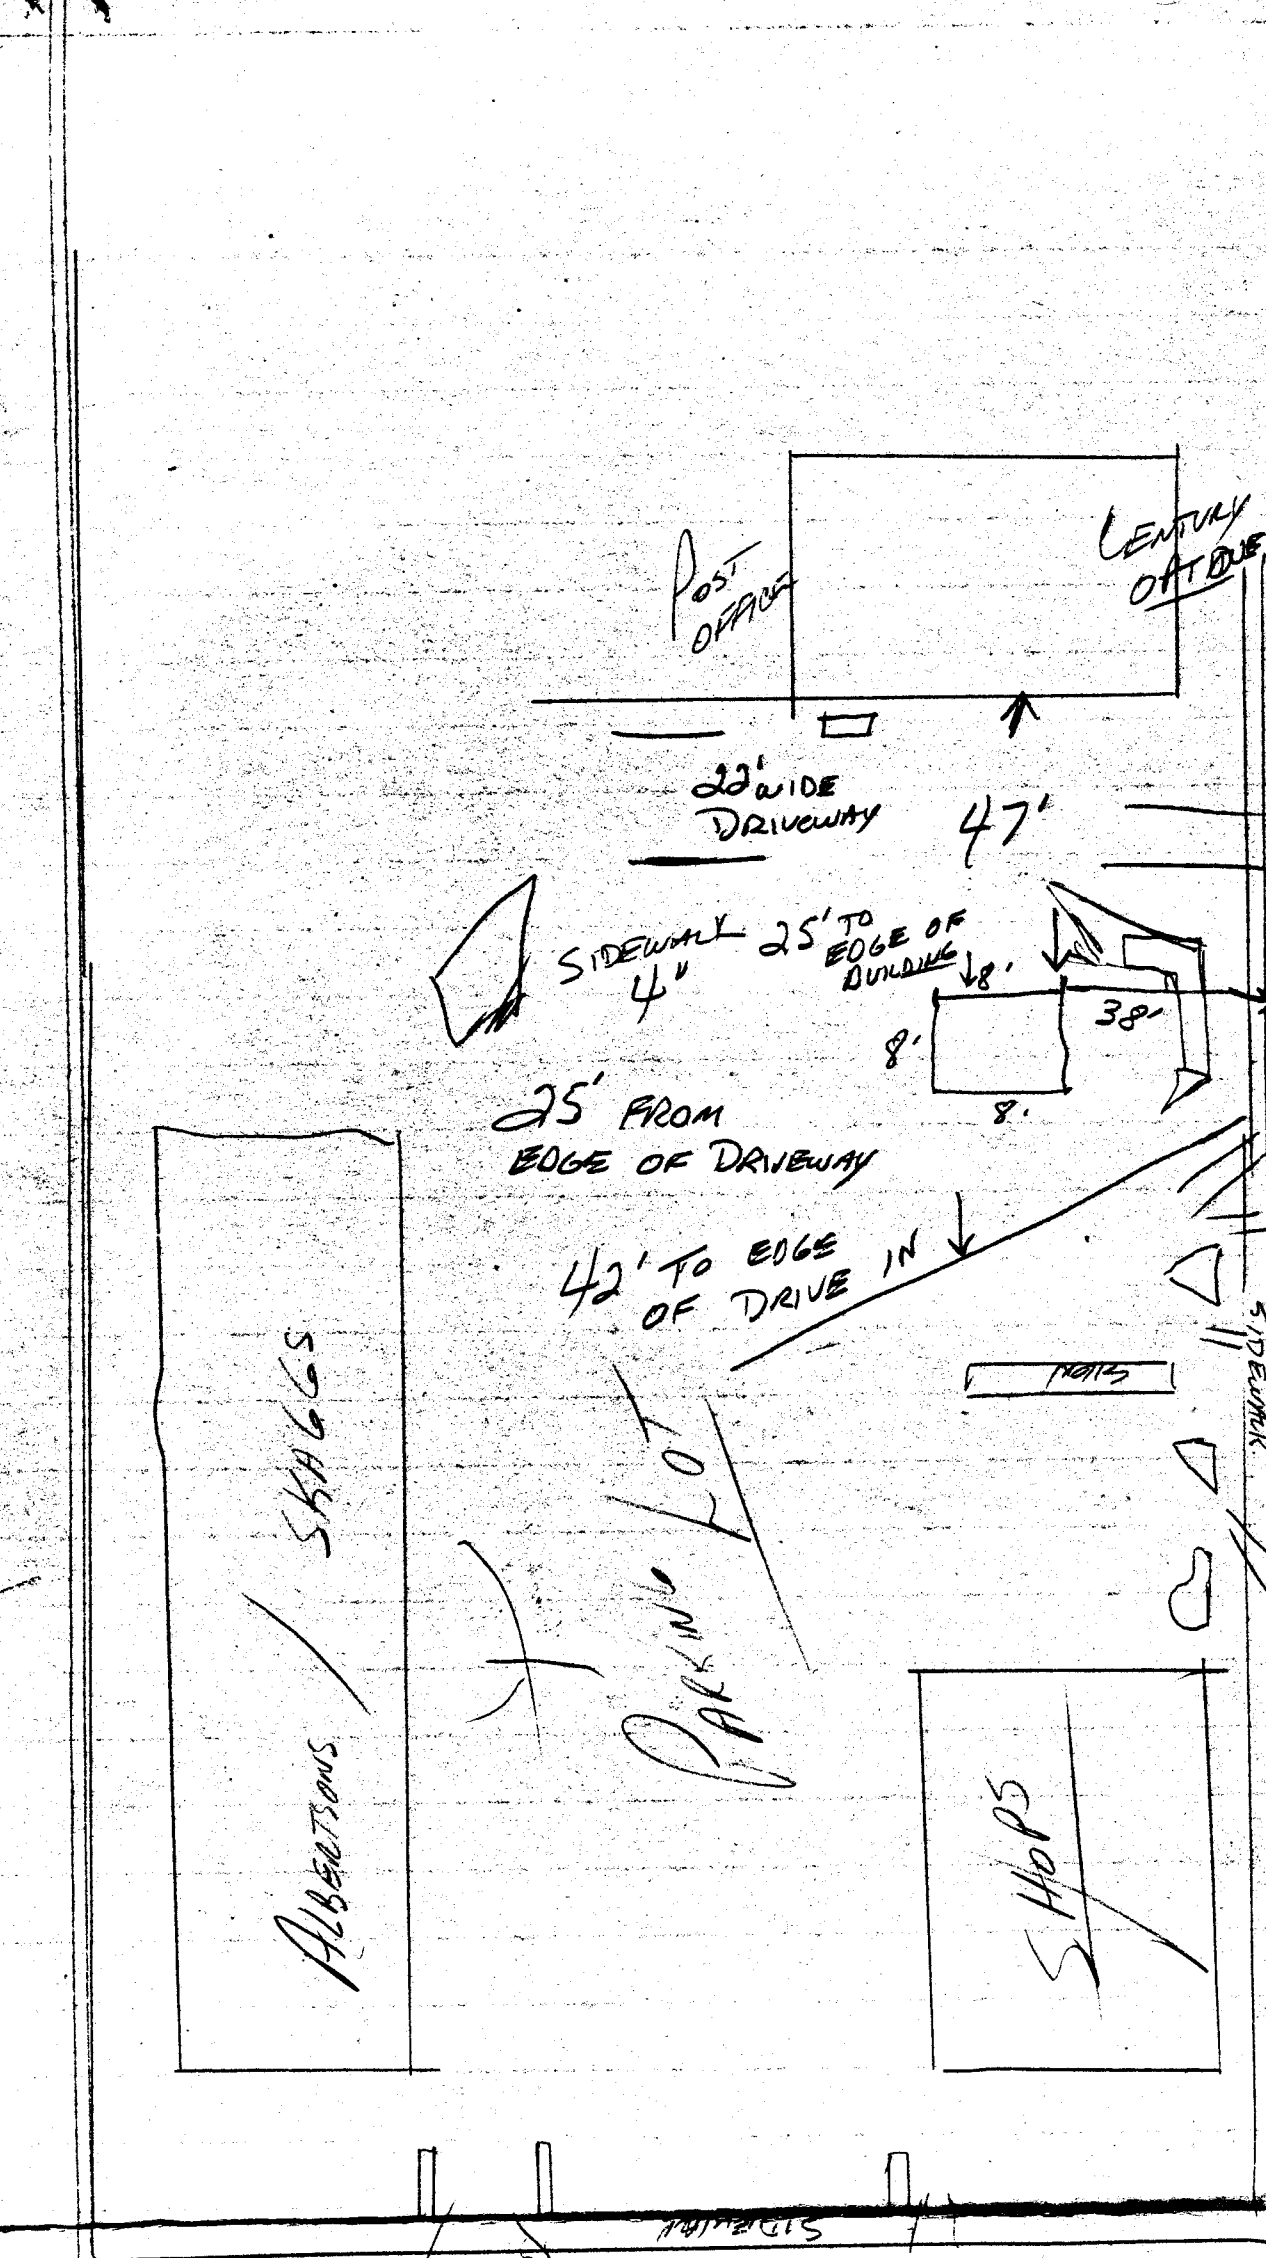 POST
OFFICE
CENTURY
22' WIDE
DRIVEWAY
47'
SIDEWALK
4"
25' TO
EDGE OF
BUILDING
8'
38'
8'
8'
25' FROM
EDGE OF DRIVEWAY
42' TO EDGE
OF DRIVE IN
SIDEWALK
SIGN
ALBERTSONS / SKAGGS
PARKING LOT
SHOPS
SIDEWALK